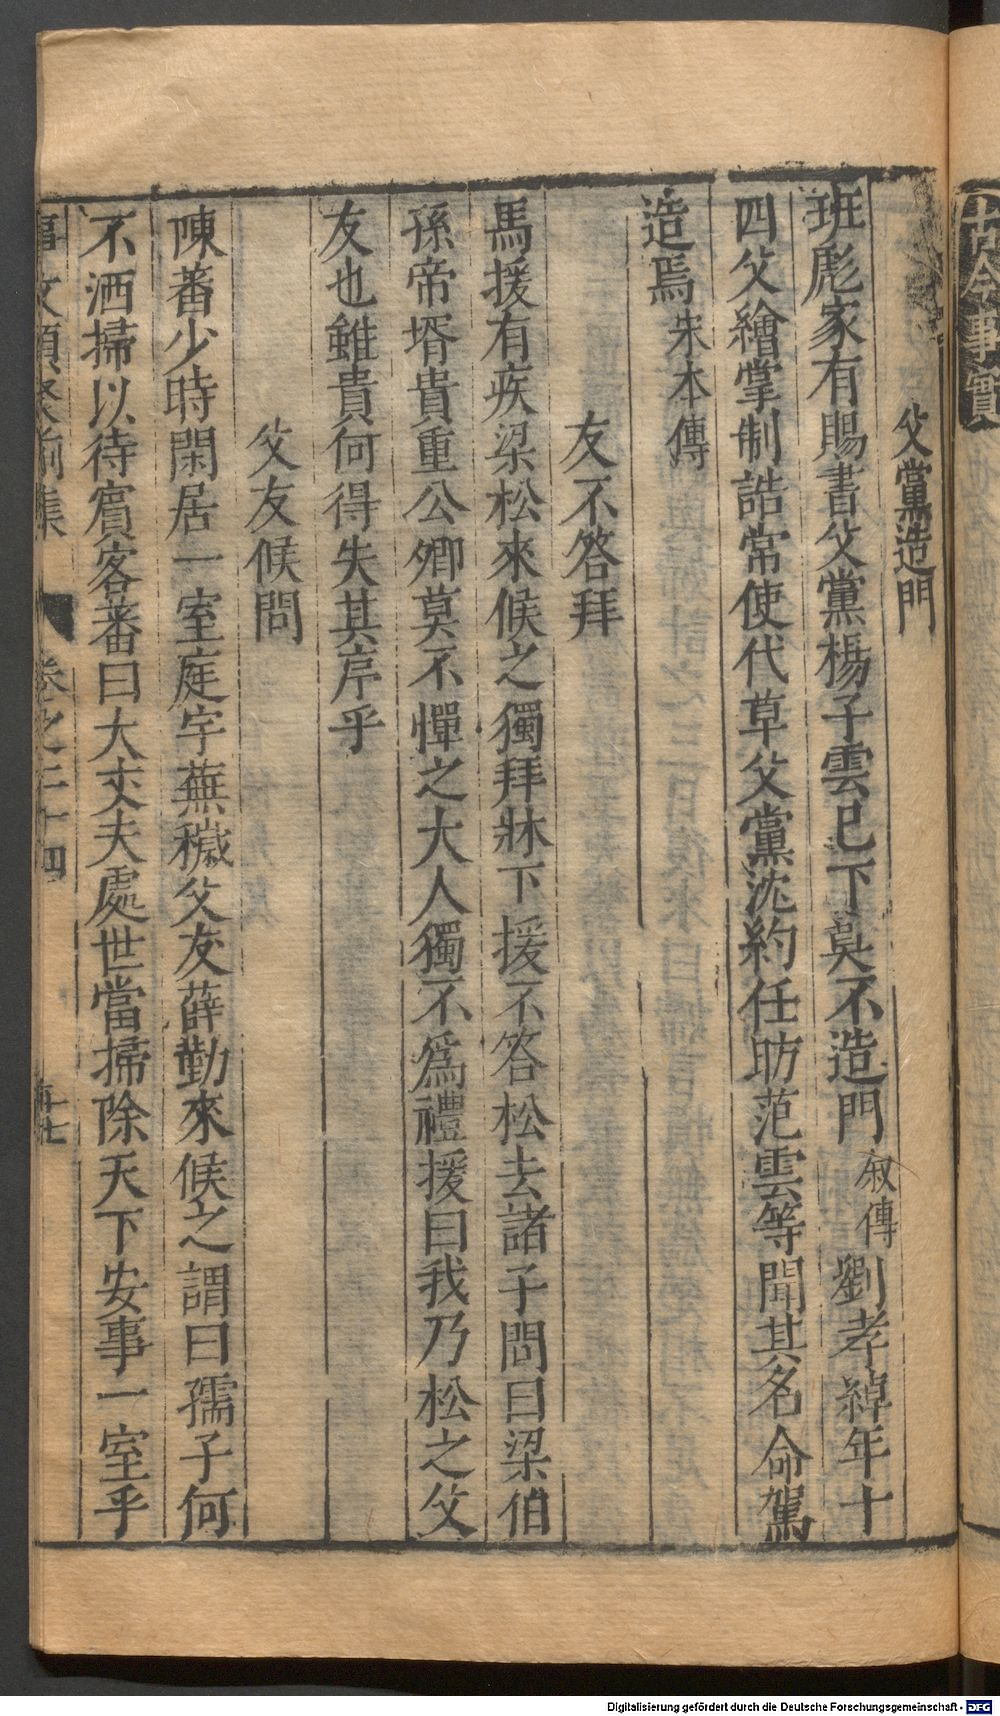 古今事實
父黨造門
班彪家有賜書父黨楊子雲已下莫不造門叙傳劉孝綽年十
四父繪掌制誥常使代草父黨沈約任昉范雲等聞其名命駕
造焉朱本傳
友不答拜
馬援有疾梁松來候之獨拜牀下援不答松去諸子問曰梁伯
孫帝壻貴重公卿莫不憚之大人獨不爲禮援曰我乃松之父
友也雖貴何得失其序乎
父友候問
陳蕃少時閑居一室庭宇蕪穢父友薛勤來候之謂曰孺子何
不洒掃以待賓客蕃曰大丈夫處世當掃除天下安事一室乎
事文類聚前集 卷之二十四
Digitalisierung gefördert durch die Deutsche Forschungsgemeinschaft - DFG